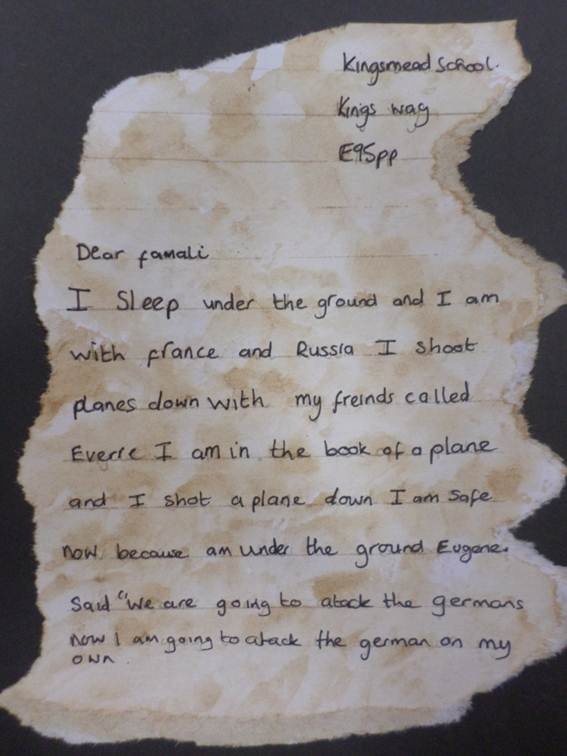 Kingsmead School.
Kings way
E95pp
Dear famali
I Sleep under the ground and I am
with france and Russia I shoot
planes down with my freinds called
I am in the book of a plane
and I shot a plane down I am Safe
now because am under the ground Eugene.
Said "We are going to atack the germans
now I am going to atack the german on my
own